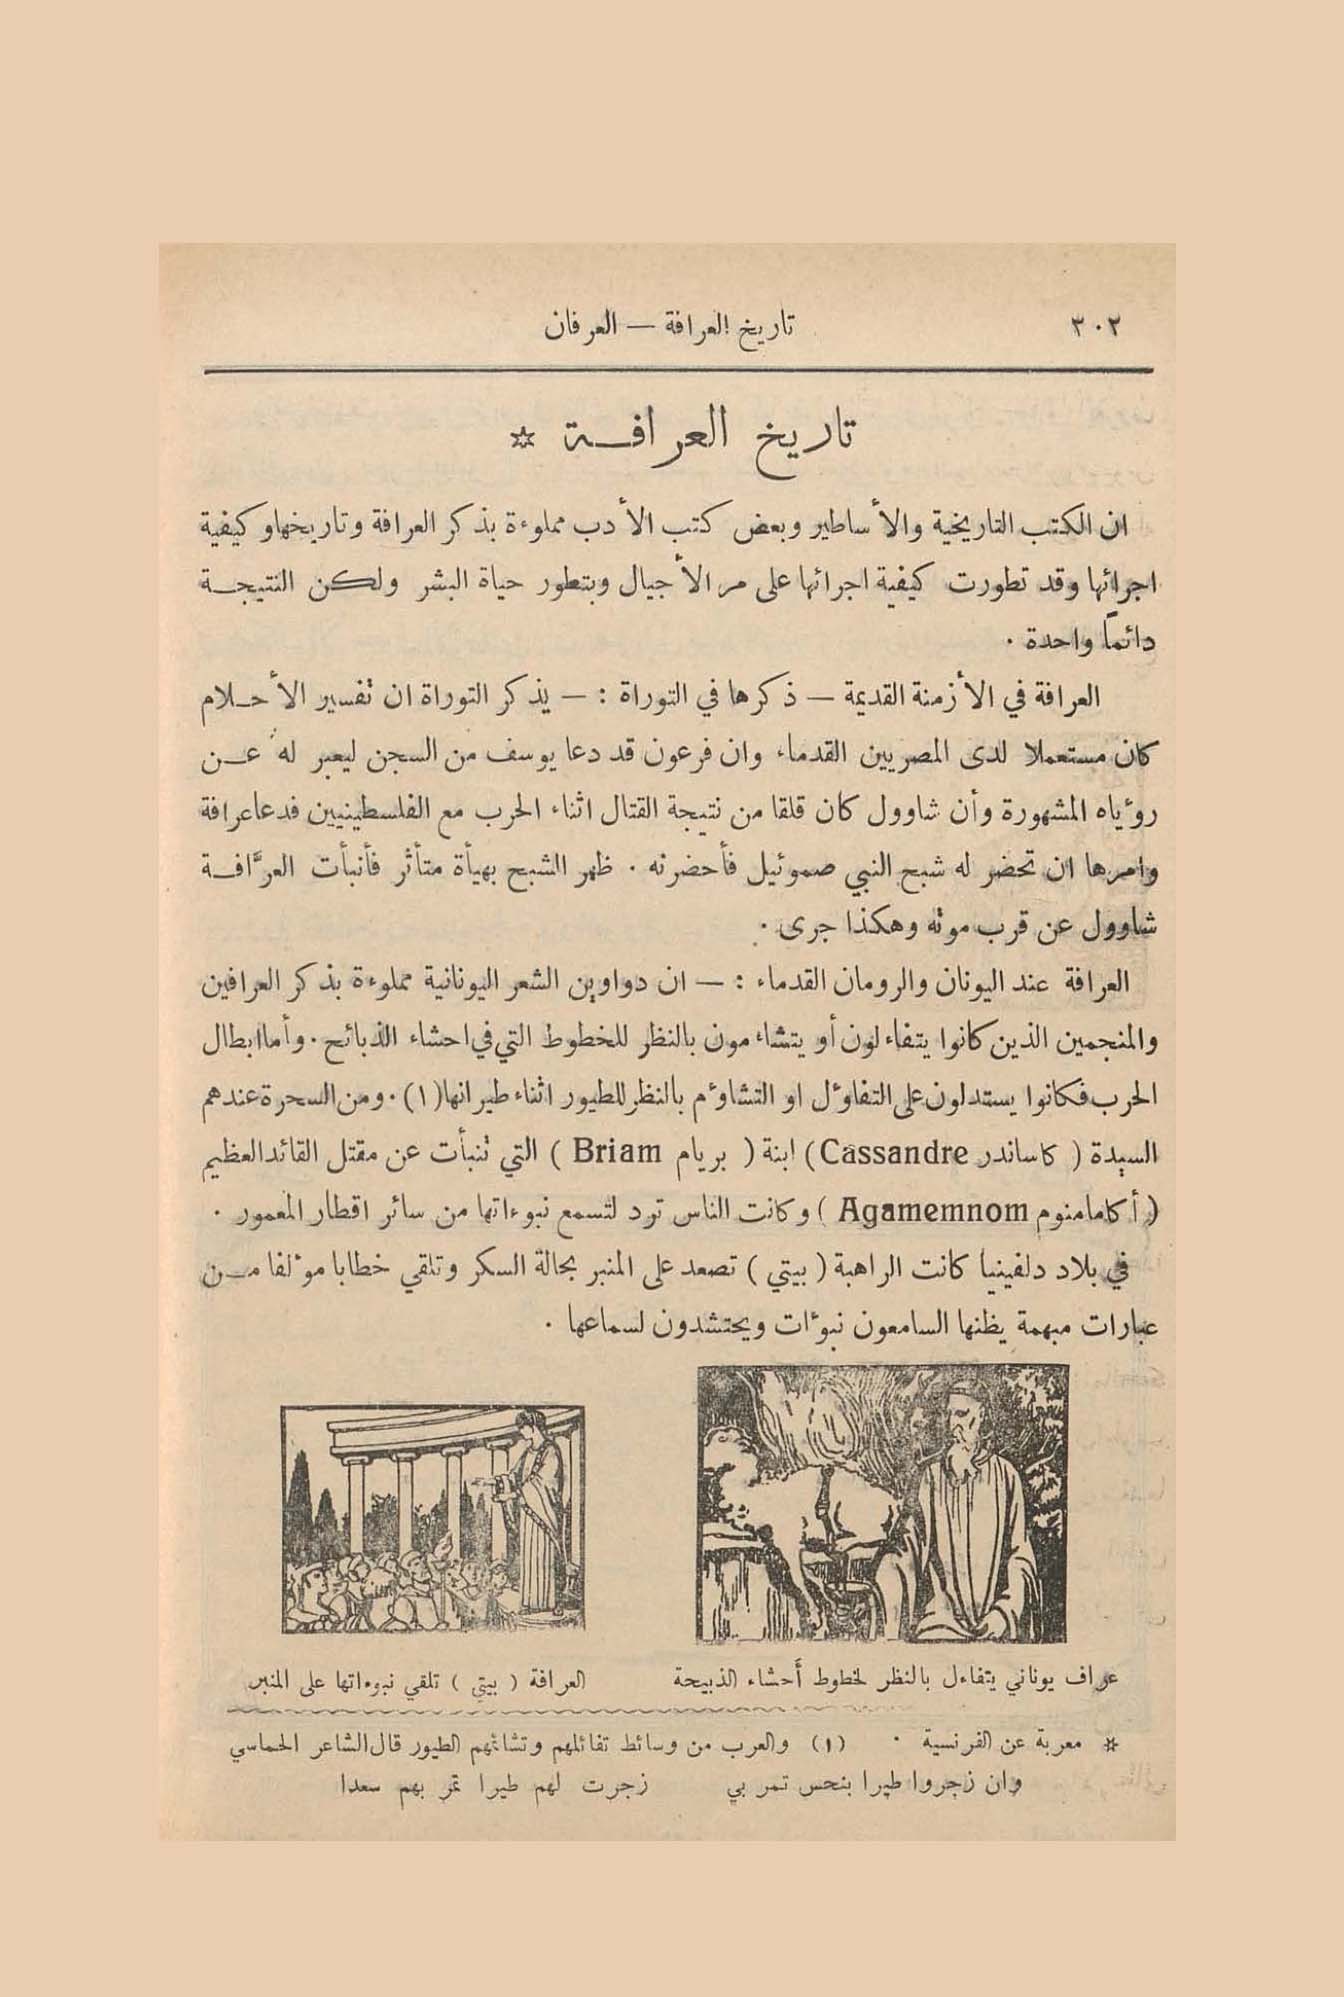 ٣٠٢
تاريخ العرافة — العرفان
تاريخ العرافـة ☆
ان الكتب التاريخية والأساطير وبعض كتب الأدب مملوءة بذكر العرافة وتاريخهاوكيفية
اجرائها وقد تطورت كيفية اجرائها على مر الأجيال وبتطور حياة البشر ولكن النتيجـة
دائماً واحدة .
العرافة في الأزمنة القديمة — ذكرها في التوراة : — يذكر التوراة ان تفسير الأحـلام
كان مستعملا لدى المصريين القدماء وان فرعون قد دعا يوسف من السجن ليعبر له عـن
رؤياه المشهورة وأن شاوول كان قلقا من نتيجة القتال اثناء الحرب مع الفلسطينيين فدعاعرافة
وامرها ان تحضر له شبح النبي صموئيل فأحضرته . ظهر الشبح بهيأة متأثر فأنبأت العرَّافـة
شاوول عن قرب موته وهكذا جرى .
العرافة عند اليونان والرومان القدماء : — ان دواوين الشعر اليونانية مملوءة بذكر العرافين
والمنجمين الذين كانوا يتفاءلون أو يتشاءمون بالنظر للخطوط التي في احشاء الذبائح . وأما ابطال
الحرب فكانوا يستدلون على التفاؤل او التشاؤم بالنظر للطيور اثناء طيرانها (١) . ومن السحرة عندهم
السيدة ( كاساندر Cassandre ) ابنة ( بريام Briam ) التي تنبأت عن مقتل القائد العظيم
( أكامامنوم Agamemnom ) وكانت الناس ترد لتسمع نبوءاتها من سائر اقطار المعمور .
في بلاد دلفينيا كانت الراهبة ( بيتي ) تصعد على المنبر بحالة السكر وتلقي خطابا مؤلفا مـن
عبارات مبهمة يظنها السامعون نبوءات ويحتشدون لسماعها .
عراف يوناني يتفاءل بالنظر لخطوط أحشاء الذبيحة
العرافة ( بيتي ) تلقي نبوءاتها على المنبر
☆ معربة عن الفرنسية . (١) والعرب من وسائط تفائلهم وتشائمهم الطيور قال الشاعر الحماسي
وان زجروا طيرا بنحس تمر بي زجرت لهم طيرا تمر بهم سعدا